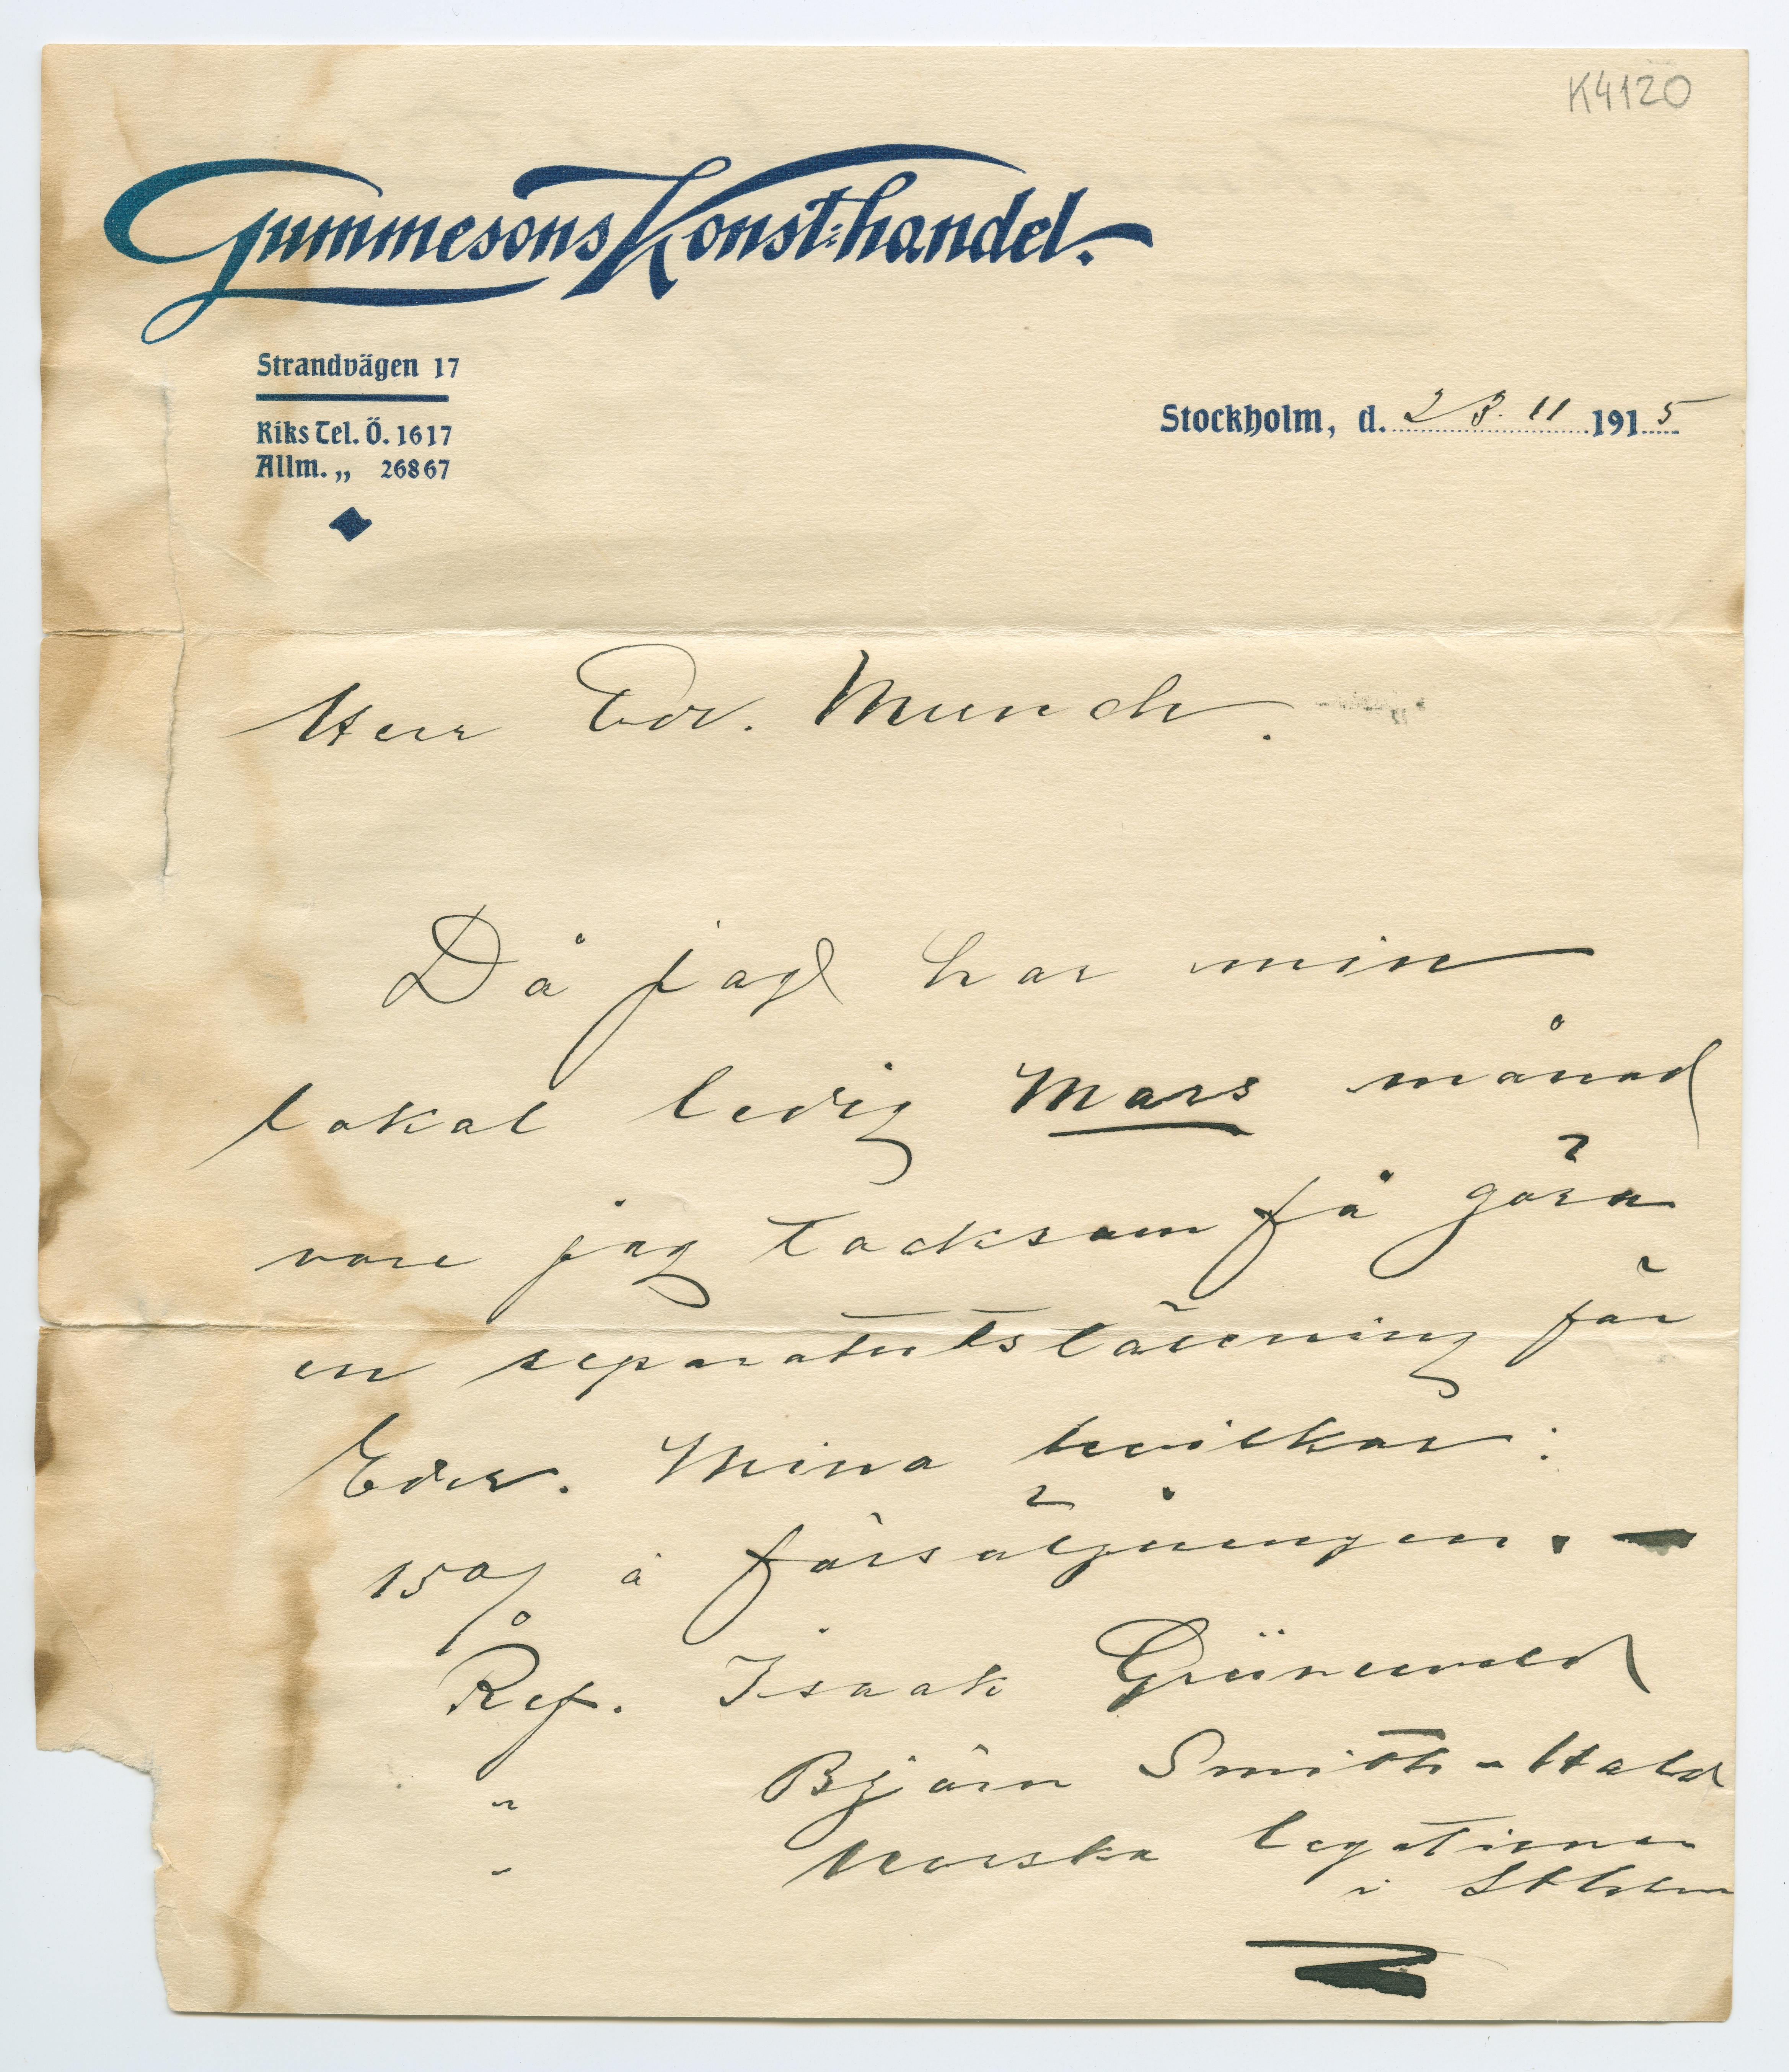 K4120
Gummesons Konst-handel.
Strandvägen 17
Riks Tel. Ö. 1617
Allm. „ 26867
Stockholm, d. 23. 11 1915
Herr Edv. Munch.
Då jag har min
lokal ledig Mars månad
vore jag tacksam få göra
en separatutställning för
Eder. Mina hvilkor:
15 % å försäljningen. —
Ref. Isaak Grünewald
" Björn Smith-Hald
" Norska legationen
i Sthlm